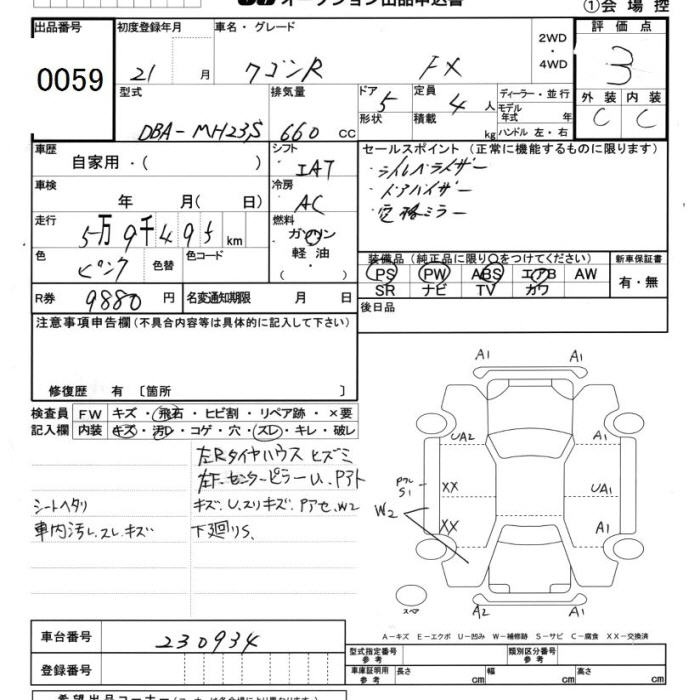 オークション出品申込書
①会場控
出品番号 初度登録年月 車名・グレード 2WD ・ 4WD 評価点
0059 21 月 ワゴンR FX 3
型式 排気量 ドア 5 定員 4 人 ディーラー・並行 外装 内装
DBA-MH23S 660 cc 形状 積載 kg モデル年式 年 ハンドル 左・右 C C
車歴 自家用・( ) シフト IAT セールスポイント (正常に機能するものに限ります)
車検 年 月( 日) 冷房 AC
・ドアバイザー
・電格ミラー
走行 5万9千495km 燃料 ガソリン 軽油 ( ・ )
色 ピンク 色替 色コード
装備品 (純正品に限り○をつけてください) 新車保証書
PS PW ABS エアB AW 有・無
SR ナビ TV カワ
R券 9880 円 名変通知期限 月 日
後日品
注意事項申告欄 (不具合内容等は具体的に記入して下さい)
修復歴 有 〔箇所 〕
検査員 FW キズ・飛石・ヒビ割・リペア跡・×要
記入欄 内装 キズ・汚レ・コゲ・穴・スレ・キレ・破レ
左Rタイヤハウス ヒズミ
左F.センターピラーU、Pアト
シートヘタリ キズ.U.スリキズ.Pアセ、W2
車内汚レ.スレ.キズ 下廻りS、
A1 A1
UA2 A1
Pアレ S1 XX UA1
W2 XX A1
スペア A2 A1
A-キズ E-エクボ U-凹み W-補修跡 S-サビ C-腐食 XX-交換済
車台番号 230934
登録番号
型式指定番号 参考 類別区分番号 参考
車庫証明用 参考 長さ cm 幅 cm 高さ cm
希望出品コーナー